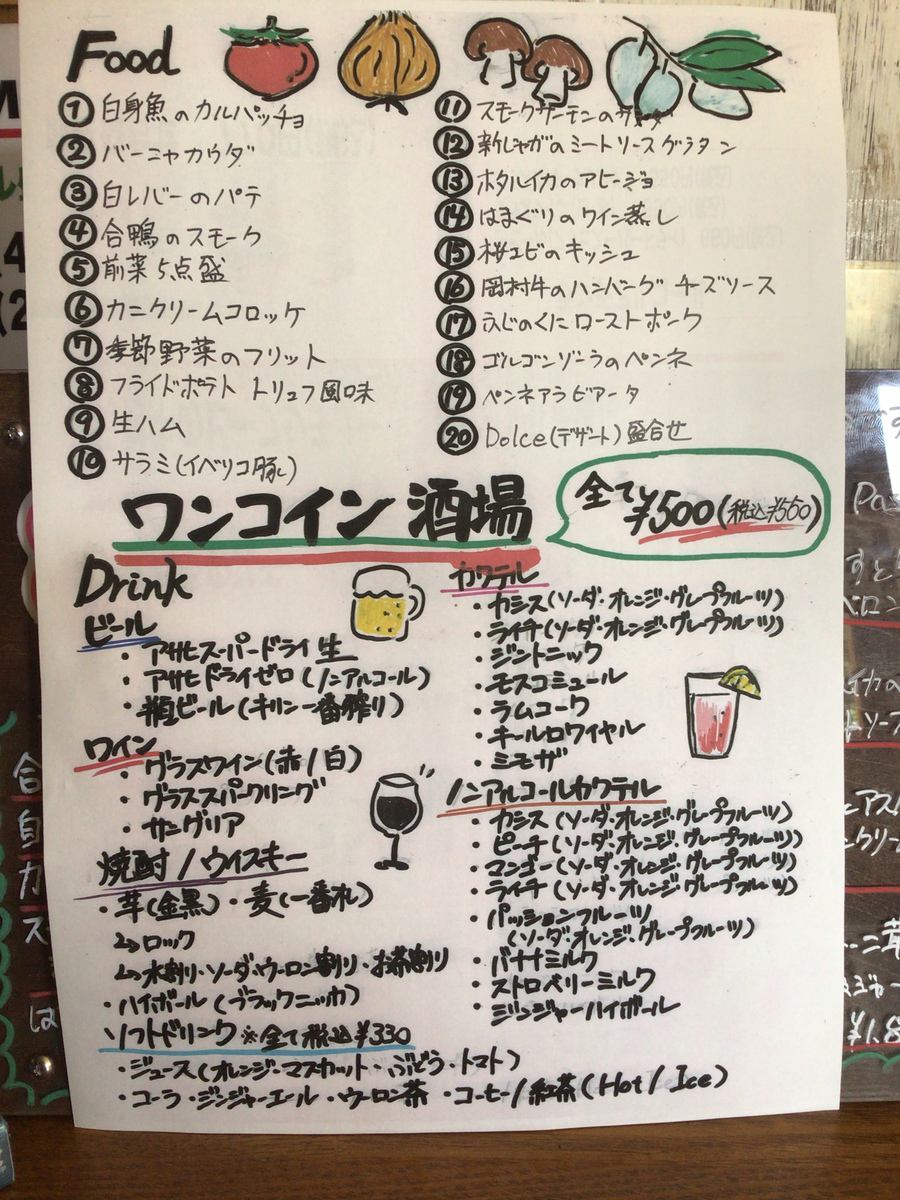 Food
① 白身魚のカルパッチョ
② バーニャカウダ
③ 白レバーのパテ
④ 合鴨のスモーク
⑤ 前菜5点盛
⑥ カニクリームコロッケ
⑦ 季節野菜のフリット
⑧ フライドポテト トリュフ風味
⑨ 生ハム
⑩ サラミ(イベリコ豚)
⑪ スモークサーモンのサラダ
⑫ 新じゃがのミートソースグラタン
⑬ ホタルイカのアヒージョ
⑭ はまぐりのワイン蒸し
⑮ 桜エビのキッシュ
⑯ 岡村牛のハンバーグ チーズソース
⑰ ふじのくにローストポーク
⑱ ゴルゴンゾーラのペンネ
⑲ ペンネアラビアータ
⑳ Dolce(デザート)盛合せ
ワンコイン酒場
全て¥500(税込¥550)
Drink
ビール
・アサヒスーパードライ生
・アサヒドライゼロ(ノンアルコール)
・瓶ビール(キリン一番搾り)
ワイン
・グラスワイン(赤/白)
・グラススパークリング
・サングリア
焼酎/ウイスキー
・芋(金黒)・麦(一番札)
↳ロック
↳水割り・ソーダ・ウーロン割り・お茶割り
・ハイボール(ブラックニッカ)
ソフトドリンク ※全て税込¥330
・ジュース(オレンジ・マスカット・ぶどう・トマト)
・コーラ・ジンジャーエール・ウーロン茶・コーヒー/紅茶(Hot/Ice)
カクテル
・カシス(ソーダ・オレンジ・グレープフルーツ)
・ライチ(ソーダ・オレンジ・グレープフルーツ)
・ジントニック
・モスコミュール
・ラムコーク
・キールロワイヤル
・ミモザ
ノンアルコールカクテル
・カシス(ソーダ・オレンジ・グレープフルーツ)
・ピーチ(ソーダ・オレンジ・グレープフルーツ)
・マンゴー(ソーダ・オレンジ・グレープフルーツ)
・ライチ(ソーダ・オレンジ・グレープフルーツ)
・パッションフルーツ
(ソーダ・オレンジ・グレープフルーツ)
・バナナミルク
・ストロベリーミルク
・ジンジャーハイボール